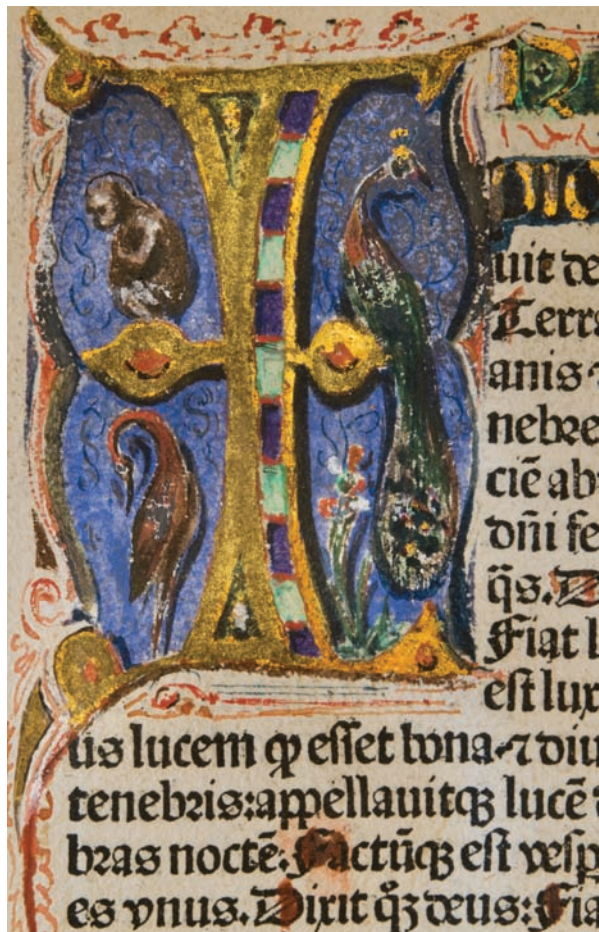 I
R
PIO
uit de
Terra
anis ⁊
nebre
ciē ab
dñi fe
q̄s. D
Fiat l
est lux
us lucem ꝙ esset bona·⁊ diu
tenebris:appellauitqꝫ lucē
bras noctē. Factūqꝫ est vesp
es vnus. Dixit q̄ꝫ deus: Fia